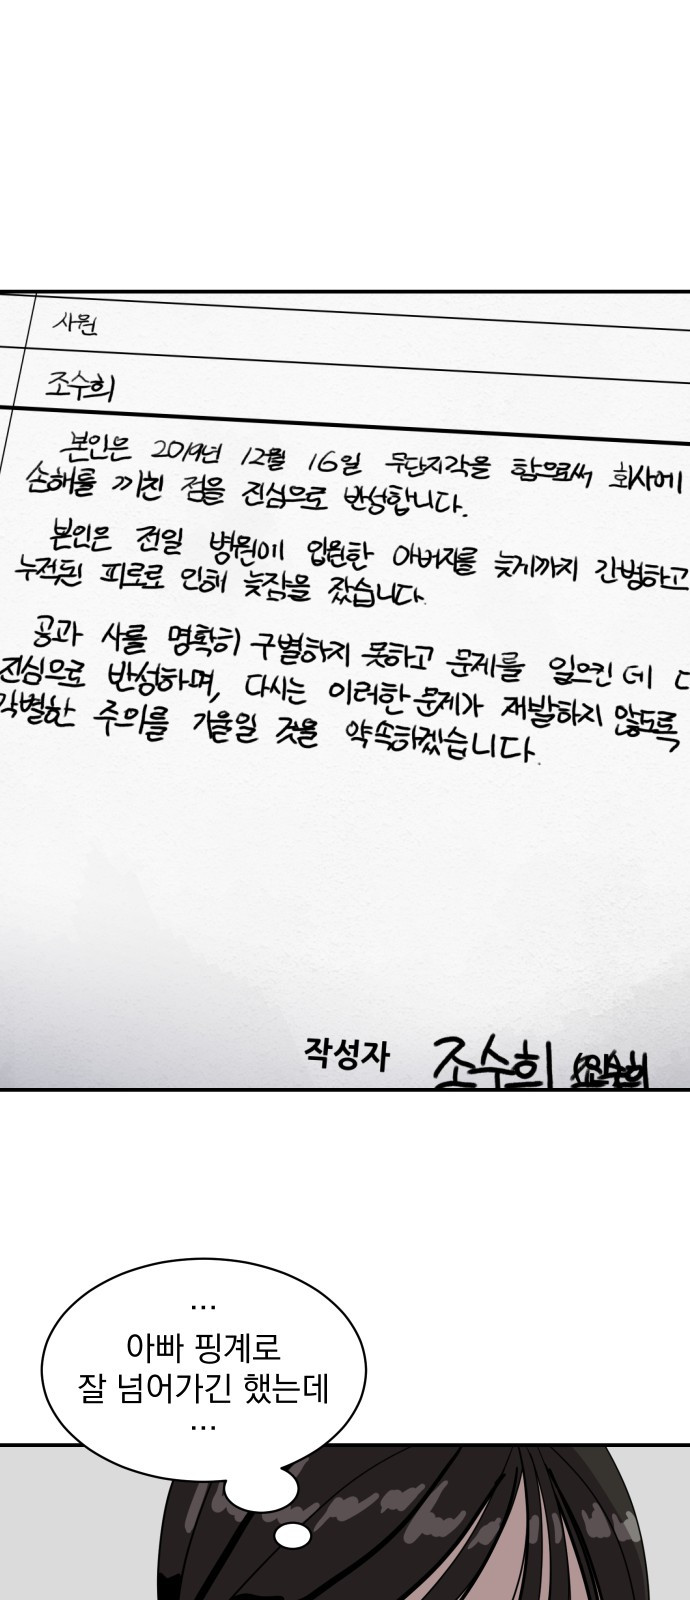 사원
조수희
본인은 2019년 12월 16일 무단지각을 함으로써 회사에
손해를 끼친 점을 진심으로 반성합니다.
본인은 전일 병원에 입원한 아버지를 늦게까지 간병하고
누적된 피로로 인해 늦잠을 잤습니다.
공과 사를 명확히 구별하지 못하고 문제를 일으킨 데
진심으로 반성하며, 다시는 이러한 문제가 재발하지 않도록
각별한 주의를 기울일 것을 약속하겠습니다.
작성자 조수희 조수희
…
아빠 핑계로
잘 넘어가긴 했는데
…